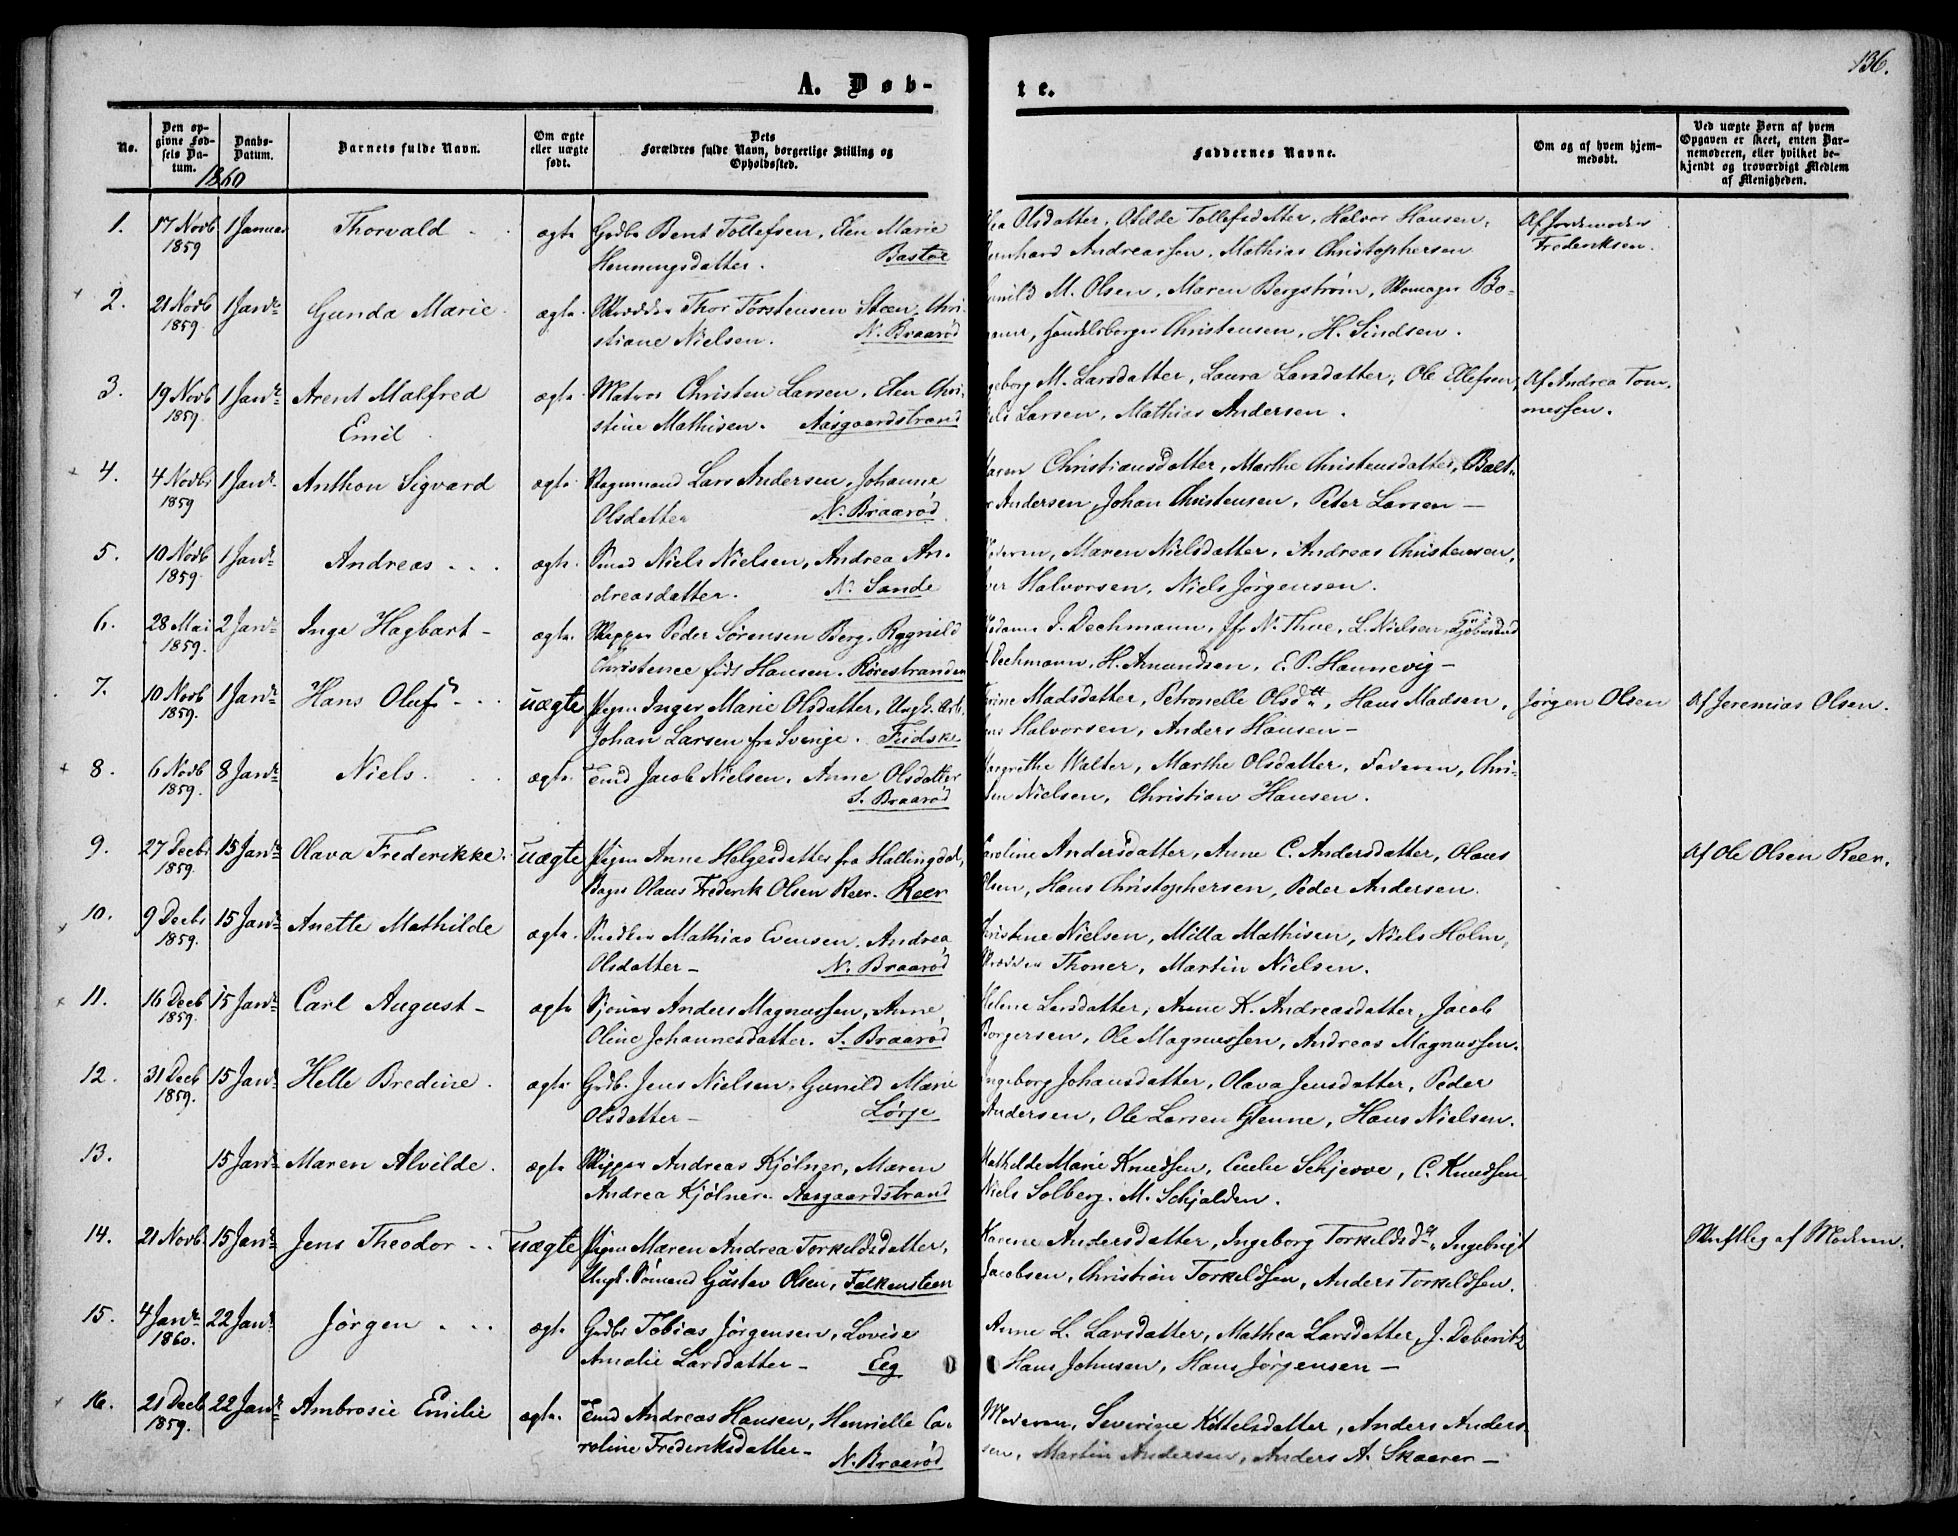 136.
A. Døb-
te.
No.
Den op-
givne Fød-
sels Da-
tum.
Daabs-
Datum.
Barnets fulde Navn.
Om ægte
eller uægte
født.
Dets
Forældres fulde Navn, borgerlige Stilling og
Opholdssted.
Faddernes Navne.
Om og af hvem hjem-
medøbt.
Ved uægte Børn af hvem
Opgaven er skeet, enten Bar-
nemoderen, eller hvilket be-
kjendt og troværdigt Medlem
af Menigheden.
1860
1. 17 Novb 1 Januar Thorvald ægte Gudb. Bent Tollefsen, Elen Marie Olsdatter, Olilde Tollefsdatter, Halvor Hansen, Af Jordemoder
1859 Henningsdatter. Bastøe Andreassen, Mathias Christophersen Frederiksen.
2. 21 Novb 1 Janr Gunda Marie ægte Skrædder Thor Torstensen Steen, Chri- M. Olsen, Maren Bergstrøm, Skomager Bo-
1859 stiane Nielsen. N. Braarød Handelsborger Christensen, H. Sindsen.
3. 19 Novb 1 Janr Arent Malfred ægte Matros Christen Larsen, Elen Chri- M. Larsdatter, Laura Larsdatter, Ole Ellefsen, Af Andrea Tom-
1859. Emil stine Mathisen. Aasgaardstrand Larsen, Mathias Andersen. messen.
4. 4 Novb 1 Janr Anthon Sigvard ægte Lars Andersen, Johanne Christiansdatter, Marthe Christensdatter, Balt-
1859 Olsdatter N. Braarød Andersen, Johan Christensen, Peter Larsen —
5. 10 Novb 1 Janr Andreas ægte Smed Niels Nielsen, Andrea An- Maren Nielsdatter, Andreas Christensen,
1859. dreasdatter. N. Sande Halvorsen, Niels Jørgensen.
6. 28 Mai 2 Janr Inge Hagbart - ægte Skipper Peder Sørensen Berg, Ragnild J. Dechmann, Jfr N. Thue, L. Nielsen,
1859. Christence født Hansen. Rørestranden Dechmann, H. Amundsen, E. P. Hannevig —
7. 10 Novb 1 Janr Hans Oluf uægte Pigen Inger Marie Olsdatter, Ungk. Arb. Madsdatter, Petronelle Olsdtt, Hans Madsen, Jørgen Olsen Af Jeremias Olsen.
1859. Johan Larsen fra Sverige. Fudske Halvorsen, Anders Hansen —
8. 6 Novb 8 Janr Niels. ægte Jacob Nielsen, Anne Olsdatter Walter, Marthe Olsdatter, Faderen, Chri-
1859. S. Braarød Nielsen, Christian Hansen.
9. 27 Decbr 15 Janr Olava Frederikke. uægte Pigen Anne Helgesdatter fra Hallingdal, Andersdatter, Anne C. Andersdatter, Olaus Af Ole Olsen Reer.
1859. Olaus Frederik Olsen Reer. Reer Olsen, Hans Christophersen, Peder Andersen.
10. 9 Decbr 15 Janr Anette Mathilde ægte Snedker Mathias Evensen, Andrea Nielsen, Milla Mathisen, Niels Holm,
1859. Olsdatter — N. Braarød Skrædder Thoner, Martin Nielsen.
11. 16 Decb 15 Janr Carl August — ægte Anders Magnussen, Anne Helene Larsdatter, Anne K. Andreasdatter, Jacob
1859. Oline Johannesdatter. S. Braarød Borgersen, Ole Magnussen, Andreas Magnussen.
12. 31 Decb 15 Janr Helle Bredine. ægte Gudb. Jens Nielsen, Gunild Marie Ingeborg Johansdatter, Olava Jensdatter, Peder
1859. Olsdatter — Lørje Andersen, Ole Larsen Glenne, Hans Nielsen.
13. 15 Janr Maren Alvilde. ægte Skipper Andreas Kjølner, Maren Mathilde Marie Knudsen, Schjerve, C. Knudsen
Andrea Kjølner. Aasgaardstrand Niels Solberg. M. Schjolden.
14. 21 Novb. 15 Janr Jens Theodor uægte Pigen Maren Andrea Torkildsdatter, Karene Andersdatter, Ingeborg Torkildsd, Ingebrigt Skriftlig af Moderen.
Ungk. Sømand Gustav Olsen, Falkensteen Jacobsen, Christian Torkildsen, Anders Torkildsen.
15. 4 Janr 22 Janr Jørgen ægte Gudbr Tobias Jørgensen, Lovise Anne L. Larsdatter, Mathea Larsdatter, J. Deberitz
1860. Amalie Larsdatter — Eeg Hans Johnsen, Hans Jørgensen —
16. 21 Decb 22 Janr Ambrosie Emilie ægte Andreas Hansen, Henriette Ca- Moderen, Severine Kittelsdatter, Anders Anders-
1859. roline Frederiksdatter — N. Braarød sen, Martin Andersen, Anders A. Skaerer —